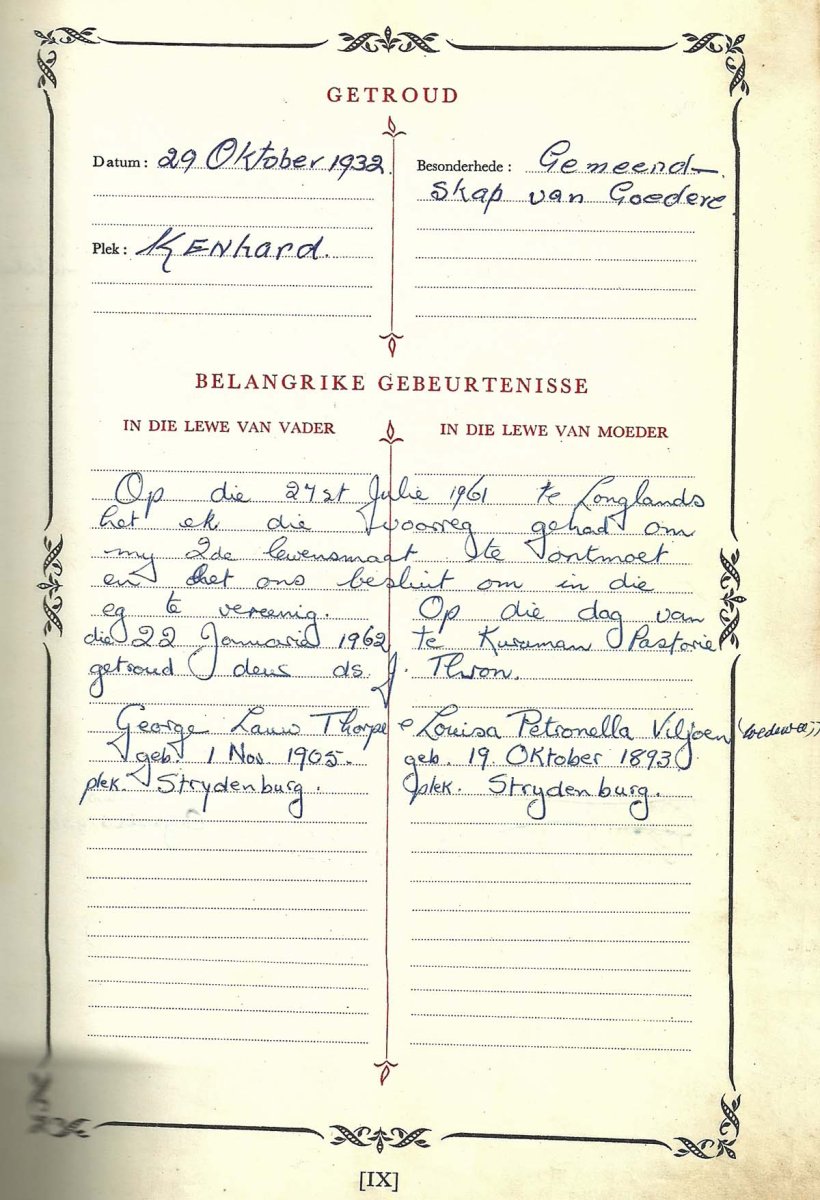 GETROUD
Datum: 29 Oktober 1932.
Besonderhede: Gemeend-
skap van Goedere
Plek: KENhard.
BELANGRIKE GEBEURTENISSE
IN DIE LEWE VAN VADER
IN DIE LEWE VAN MOEDER
Op die 27st Julie 1961 te Longlands
het ek die voorreg gehad om
my 2de lewensmaat te ontmoet
en het ons besluit om in die
eg te vereenig. Op die dag van
die 22 Januarie 1962 te Kuruman Pastorie
getroud deur ds. J. Thron.
George Lauw Thorpe e Louisa Petronella Viljoen (wedewee)
geb. 1 Nov. 1905. geb. 19. Oktober 1893
plek. Strydenburg. plek. Strydenburg.
[IX]